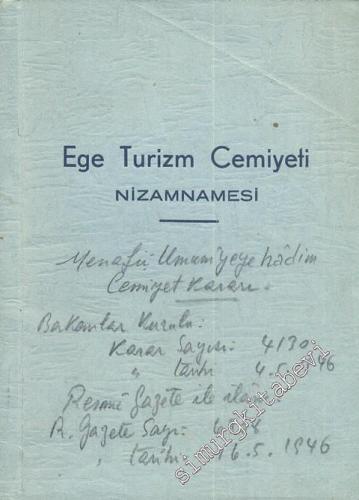 Ege Turizm Cemiyeti
NİZAMNAMESİ
Menafii Umumiyeye hâdim
Cemiyet Kararı.
Bakanlar Kurulu:
Karar Sayısı: 4130
" tarihi 4.5.1946
Resmî Gazete ile ilânı:
R. Gazete Sayı:
" tarihi: 16.5.1946
simurgkitabevi